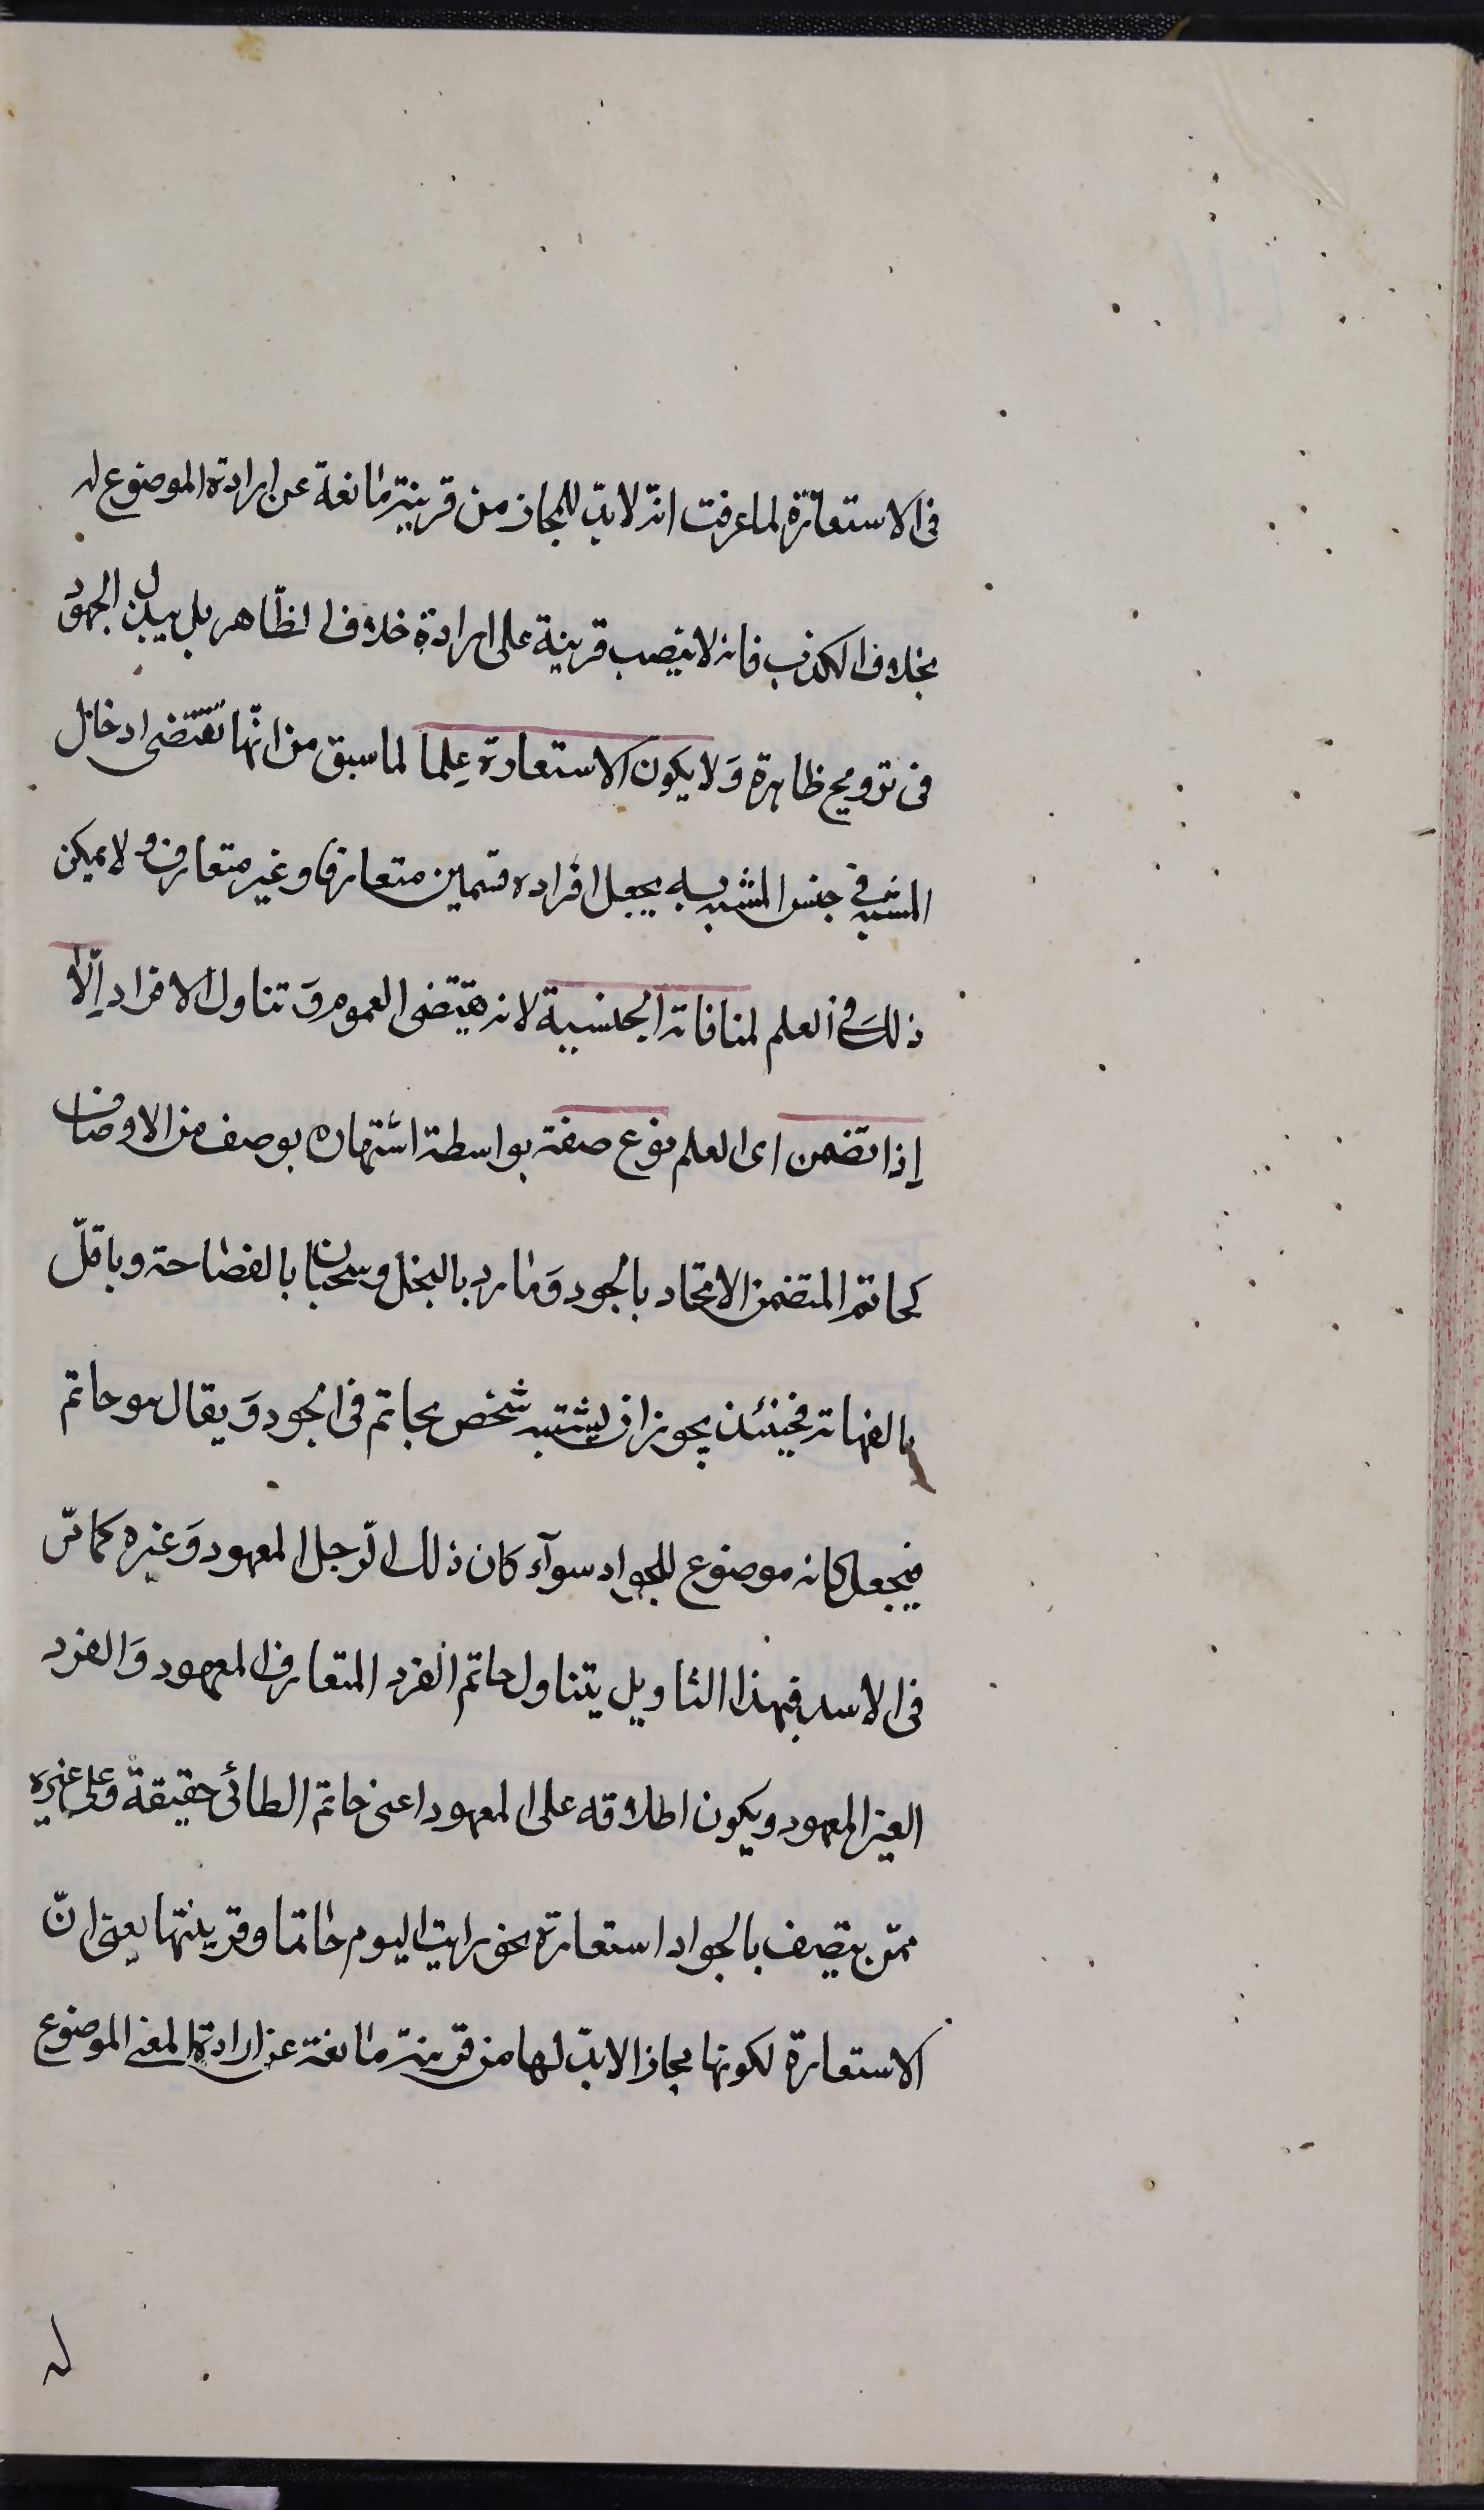 فى الاستعارة لما عرفت انه لابدّ للمجاز من قرينة مانعة عن ارادة الموضوع له
بخلاف الكذب فانه لا ينصب قرينة على ارادة خلاف الظّاهر بل يبذل المجهود
فى ترويج ظاهره وَلا يكون الاستعارة عِلما لما سبق من انّها تقتضى ادخال
المشبه فى جنس المشبه به يجعل افراده قسمين متعارفا وغير متعارف ولا يمكن
ذلكَ فى العلم لمنافاته الجنسية لانه يقتضى العموم وَتناول الافراد اِلّا
اِذا تضمن اى العلم نوع صفة بواسطة اشتهاره بوصف من الاوصاف
كحاتم المتضمن الاتحاد بالجود وَمارد بالبخل وسحبان بالفصاحة وباقلّ
بالفهاته فحينئذ يجوز ان يشتبه شخص بحاتم فى الجود وَيقال هو حاتم
فيجعل كانه موضوع للجواد سوآء كان ذلك الرّجل المعهود وَغيره كما مرّ
فى الاسد فبهذا التاويل يتناول حاتم الفرد المتعارف المعهود وَالفرد
الغير المعهود ويكون اطلاقه على المعهود اعنى حاتم الطائى حقيقة وعلى غيره
ممّن يتصف بالجواد استعارة نحو رايت اليوم حاتما وقرينتها يعنى انّ
الاستعارة لكونها مجازا لابدّ لها من قرينة مانعة عن ارادة المعنى الموضوع
له